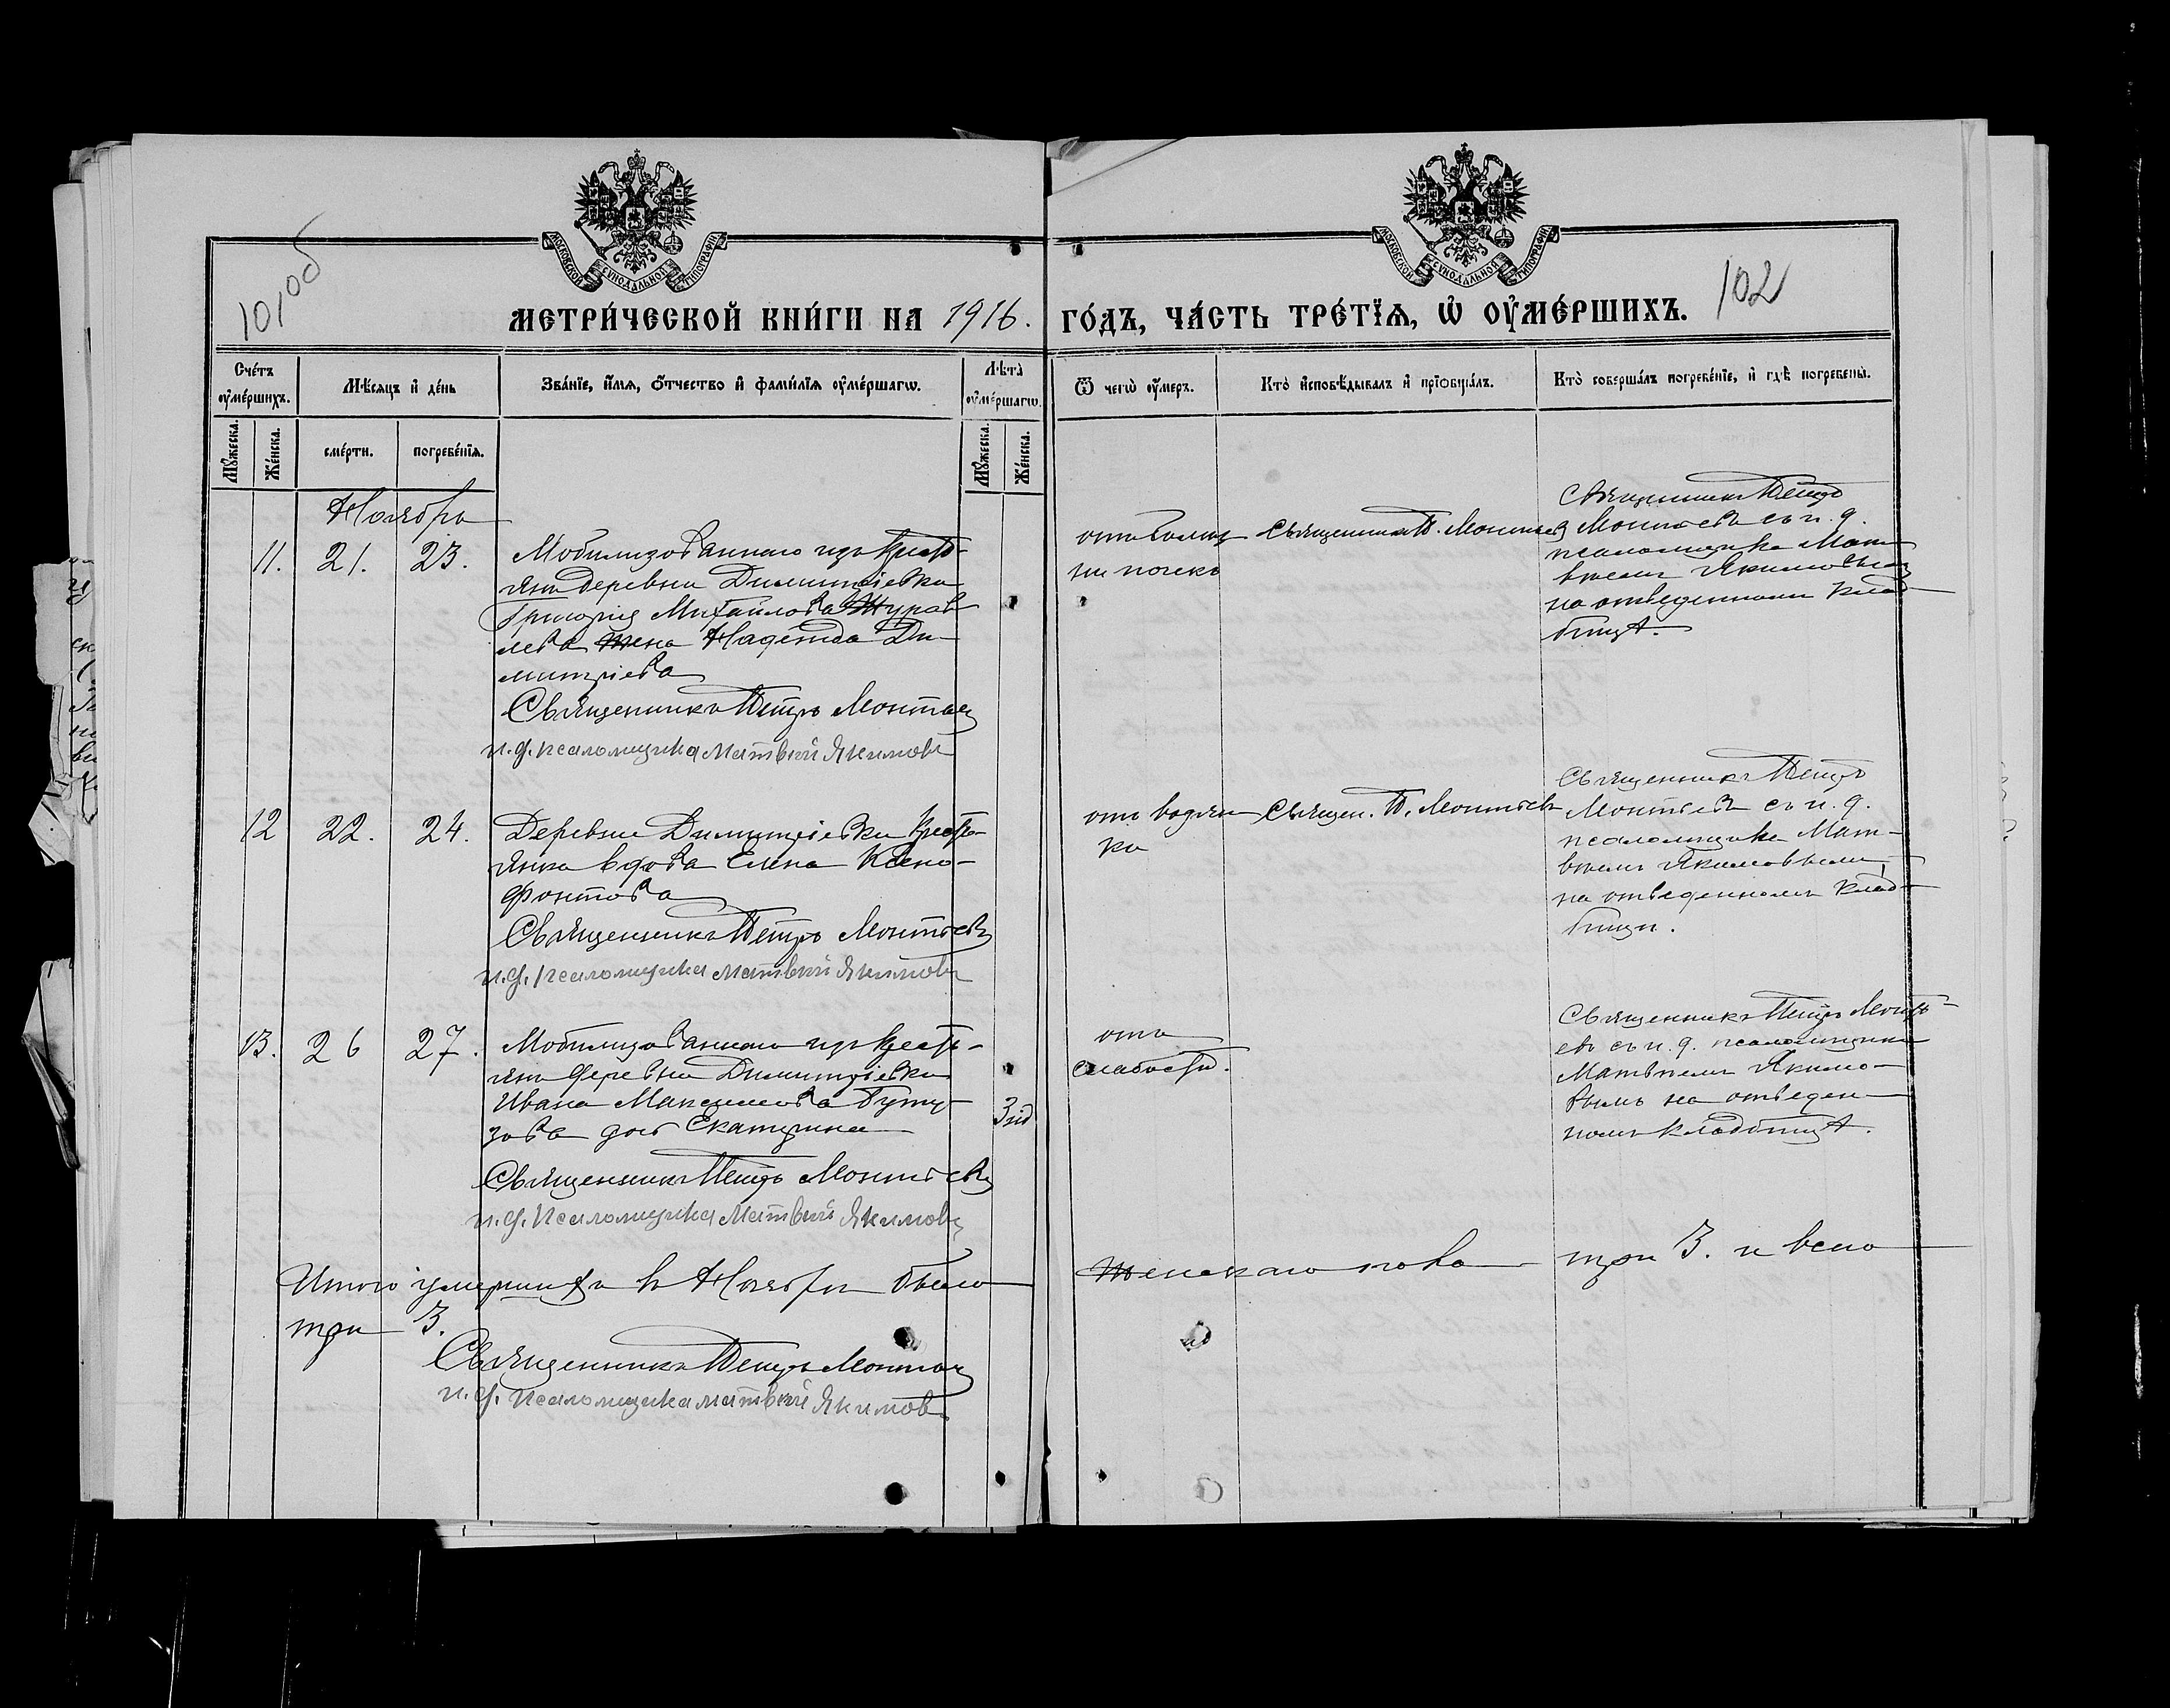 МОСКОВСКОЙ СѴНОДАЛЬНОЙ ТИПОГРАФІИ
МОСКОВСКОЙ СѴНОДАЛЬНОЙ ТИПОГРАФІИ
101об
102
МЕТРИ́ЧЕСКОЙ КНИ́ГИ НА 1916. ГО́ДЪ, ЧА́СТЬ ТРЕ́ТЇѦ, Ѡ҆ ОУ҆МЕ́РШИХЪ.
Счетъ оумершихъ.
Мѣсяцъ и день
Званїе, имя, отчество и фамилїя оумершагѡ.
Лѣта оумершагѡ.
Ѿ чегѡ оумеръ.
Кто исповѣдывалъ и прїобщалъ.
Кто совершалъ погребенїе, и гдѣ погребены.
Мужеска.
Женска.
смерти.
погребенїя.
Мужеска.
Женска.
Ноябрь
11. 21. 23.
Мобилизованнаго изъ крест-
янъ деревни Димитріевки
Григорія Михайлова Журав
лева жена Надежда Ди-
митріева
Священникъ Петръ Монтъевъ
и.д. псаломщика Матвѣй Якимовъ
отъ болѣз
ни почекъ
Священникъ П. Монтъевъ
Священникъ Петръ
Монтъевъ съ и. д.
псаломщика Мат
вѣемъ Якимовымъ
на отведенномъ клад
бищѣ.
12 22. 24.
Деревни Димитріевки крест-
янка вдова Елена Ксено-
фонтова
Священникъ Петръ Монтъевъ
и.д. псаломщика Матвѣй Якимовъ
отъ водян
ки
Священ. П. Монтъевъ
Священникъ Петръ
Монтъевъ съ и. д.
псаломщика Мат-
вѣемъ Якимовымъ
на отведенномъ клад-
бищи.
13. 26 27.
Мобилизованнаго изъ крест-
янъ деревни Димитріевки
Ивана Максимова Буту-
зова дочь Екатерина
3
Священникъ Петръ Монтъевъ
и.д. псаломщика Матвѣй Якимовъ
отъ
слабости.
Священникъ Петръ Монтъ-
евъ съ и. д. псаломщика
Матвѣемъ Якимо-
вымъ на отведен-
номъ кладбищѣ.
Итого умершихъ въ Ноябрѣ было женскаго пола три 3. и всего
три 3.
Священникъ Петръ Монтъевъ
и.д. псаломщика Матвѣй Якимовъ